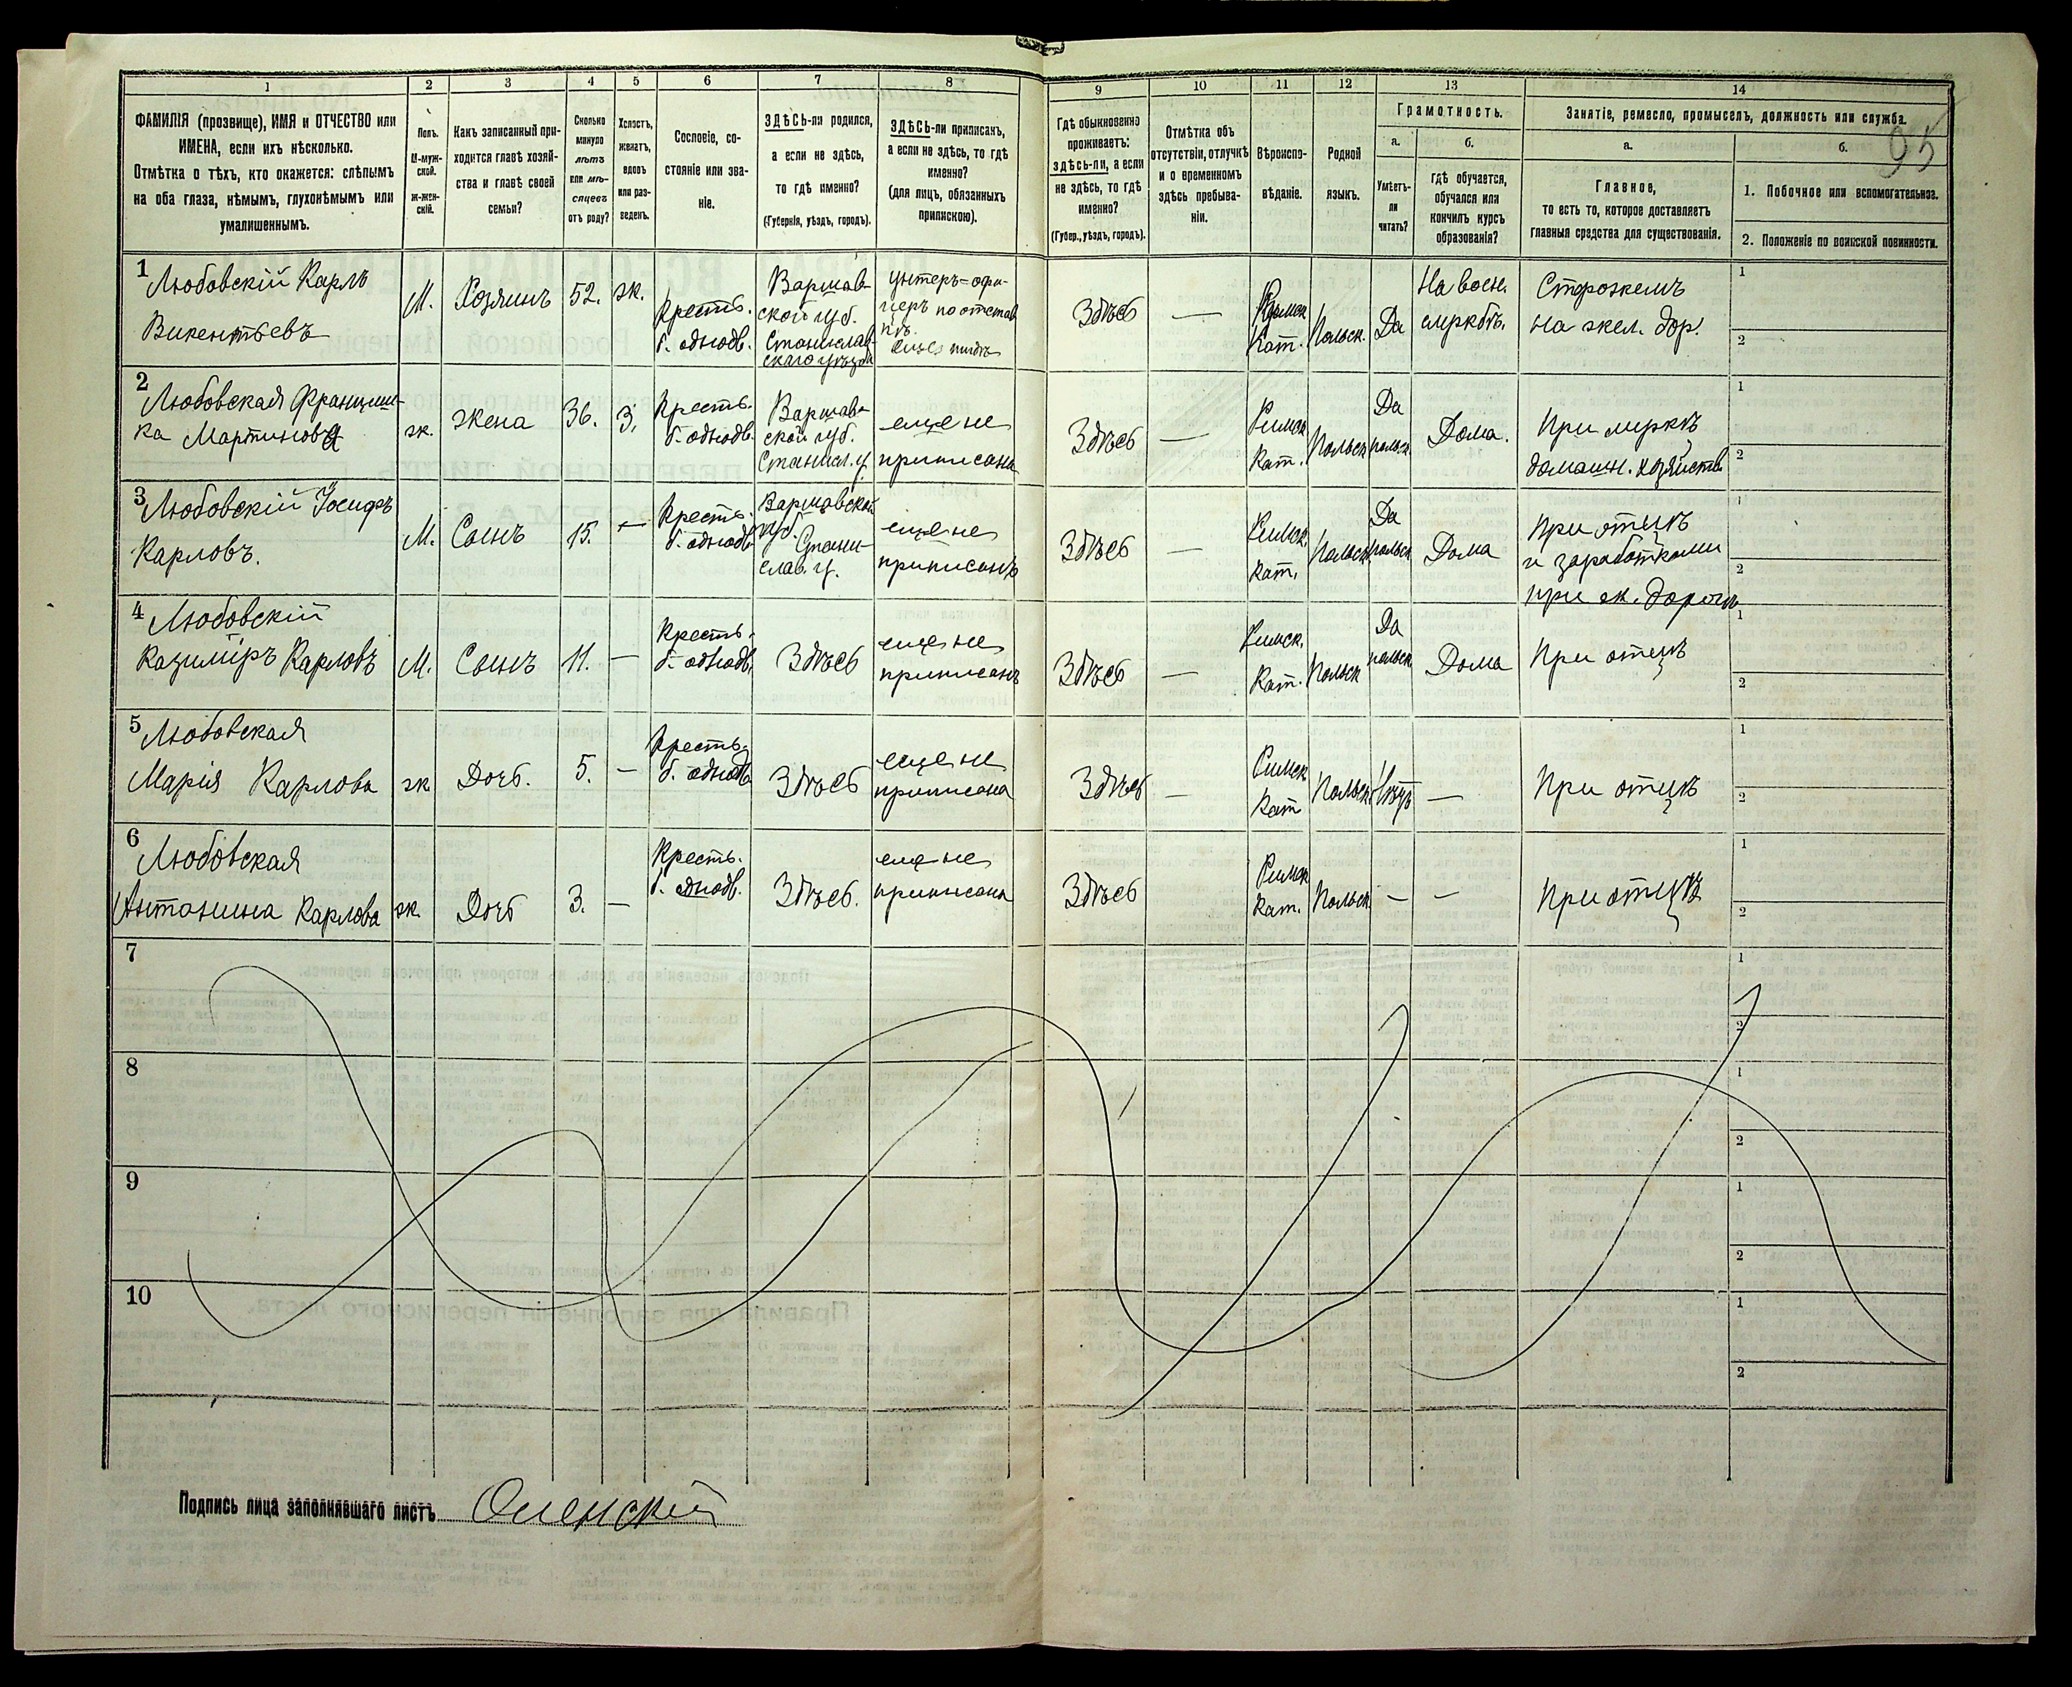 1 2 3 4 5 6 7 8 9 10 11 12 13 14
ФАМИЛІЯ (прозвище), ИМЯ и ОТЧЕСТВО или
ИМЕНА, если ихъ нѣсколько.
Отмѣтка о тѣхъ, кто окажется: слѣпымъ
на оба глаза, нѣмымъ, глухонѣмымъ или
умалишеннымъ.
Полъ.
М-муж-
ской.
Ж-жен-
скій.
Какъ записанный при-
ходится главѣ хозяй-
ства и главѣ своей
семьи?
Сколько
минуло
лѣтъ
или мѣ-
сяцевъ
отъ роду?
Холостъ,
женатъ,
вдовъ
или раз-
веденъ.
Сословіе, со-
стояніе или зва-
ніе.
ЗДѢСЬ-ли родился,
а если не здѣсь,
то гдѣ именно?
(Губернія, уѣздъ, городъ).
ЗДѢСЬ-ли приписанъ,
а если не здѣсь, то гдѣ
именно?
(для лицъ, обязанныхъ
припискою).
Гдѣ обыкновенно
проживаетъ:
здѣсь-ли, а если
не здѣсь, то гдѣ
именно?
(Губер., уѣздъ, городъ).
Отмѣтка объ
отсутствіи, отлучкѣ
и о временномъ
здѣсь пребыва-
ніи.
Вѣроиспо-
вѣданіе.
Родной
языкъ.
Грамотность.
а.
Умѣетъ-
ли
читать?
б.
гдѣ обучается,
обучался или
кончилъ курсъ
образованія?
Занятіе, ремесло, промыселъ, должность или служба.
95
а.
Главное,
то есть то, которое доставляетъ
главныя средства для существованія.
б.
1. Побочное или вспомогательное.
2. Положеніе по воинской повинности.
1
Любовскій Карлъ
Викентьевъ
М.
Хозяинъ
52.
ж.
Кресть.
б. однодв.
Варшав-
ской губ.
Станислав-
скаго уѣзда
унтеръ=офи-
церъ по отстав
Здѣсь
—
Римск
Кат.
Польск.
Да
На воен.
службѣ.
Сторожемъ
на жел. дор.
1
2
2
Любовская Франциш-
ка Мартинова
ж.
жена
36.
З.
Кресть.
б. однодв.
Варшав-
ской губ.
Станисл. у.
еще не
приписана
Здѣсь
—
Римск
Кат.
Польск
Да
польск.
Дома.
При мужѣ
домашн. хозяйств
1
2
3
Любовскій Іосифъ
Карловъ.
М.
Сынъ
15.
—
Кресть.
б. однодв.
Варшавской
губ. Стани-
слав. у.
еще не
приписанъ
Здѣсь
—
Римск.
Кат.
Польск.
Да
польск
Дома
При отцѣ
и заработками
при ж. дорогѣ
1
2
4
Любовскій
Казиміръ Карловъ
М.
Сынъ
11.
—
Кресть.
б. однодв.
Здѣсь
еще не
приписанъ
Здѣсь
—
Римск.
Кат.
Польск
Да
польск.
Дома
При отцѣ
1
2
5
Любовская
Марія Карлова
ж
Дочь.
5.
—
Кресть.
б. однодв.
Здѣсь
еще не
приписана
Здѣсь
—
Римск
Кат
Польск.
—
При отцѣ
1
2
6
Любовская
Антонина Карлова
ж.
Дочь
3.
—
Кресть.
б. однодв.
Здѣсь.
еще не
приписана
Здѣсь
Римск
Кат.
Польск.
—
—
При отцѣ
1
2
7
1
2
8
1
2
9
1
2
10
1
2
Подпись лица заполнявшаго листъ